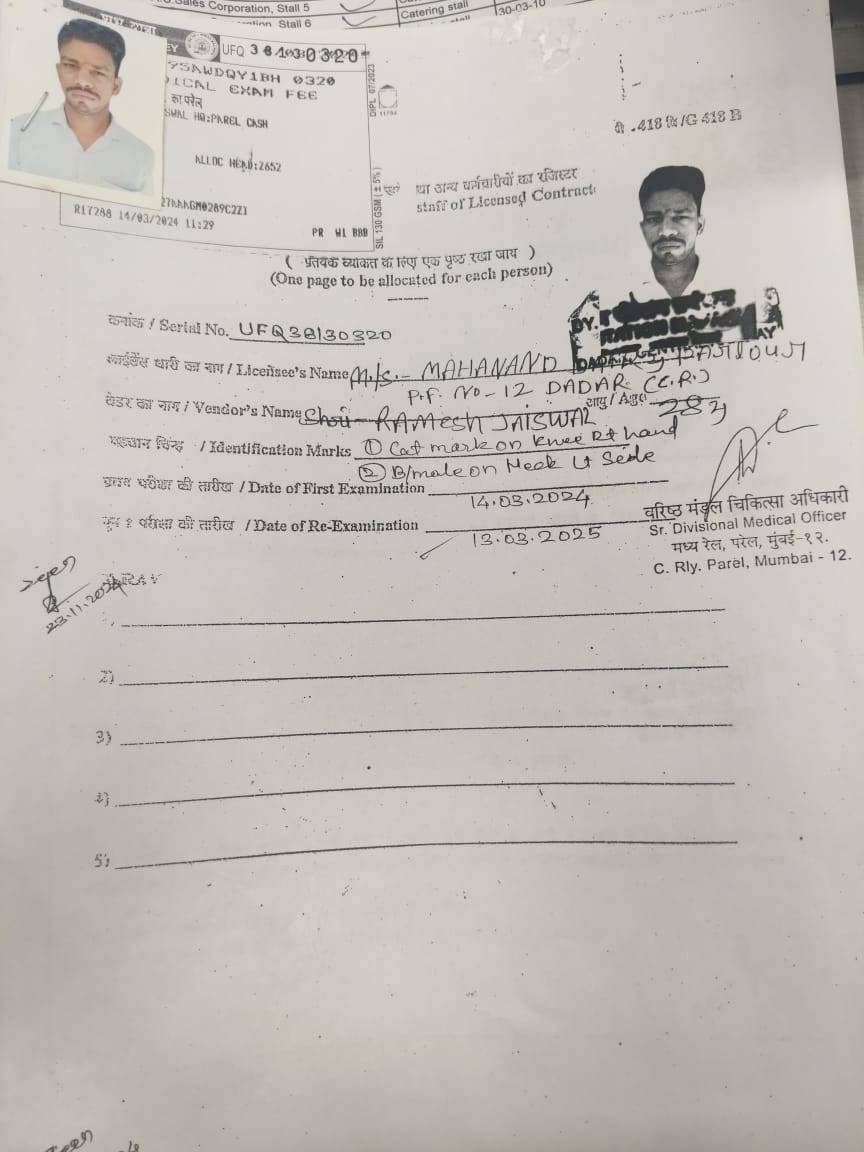 Sales Corporation, Stall 5
Stall 6
Catering stall
30-03-10
UFQ 38130320
95AWDQY1BH 0320
ICAL EXAM FEE
का परेल
SWAL HQ:PAREL CASH
ALLOC HEAD:2652
27AAAGM0289C2Z1
R17288 14/03/2024 11:29
PR W1 BBB
SIL 130 GSM (± 5%)
DIPL 07/2023
.418 बि/G 418 B
था अन्य कर्मचारीयों का रजिस्टर
staff of Licensed Contract
( प्रत्येक व्यक्ति के लिए एक पृष्ठ रखा जाय )
(One page to be allocated for each person)
क्रमांक / Serial No. UFQ38130320
लाईसेंस धारी का नाम / Licensee's Name M/s.- MAHANAND
P.F. No-12 DADAR (C.R.)
वेंडर का नाम / Vendor's Name Shri- RAMESH JAISWAL आयु / Age 28 y
पहचान चिन्ह / Identification Marks ① Cat mark on knee Rt hand
② B/mole on Neck Lt Side
प्रथम परीक्षा की तारीख / Date of First Examination 14.03.2024
परीक्षा की तारीख / Date of Re-Examination 13.03.2025
वरिष्ठ मंडल चिकित्सा अधिकारी
Sr. Divisional Medical Officer
मध्य रेल, परेल, मुंबई-१२.
C. Rly. Parel, Mumbai - 12.
23.11.2024
2)
3)
4)
5)